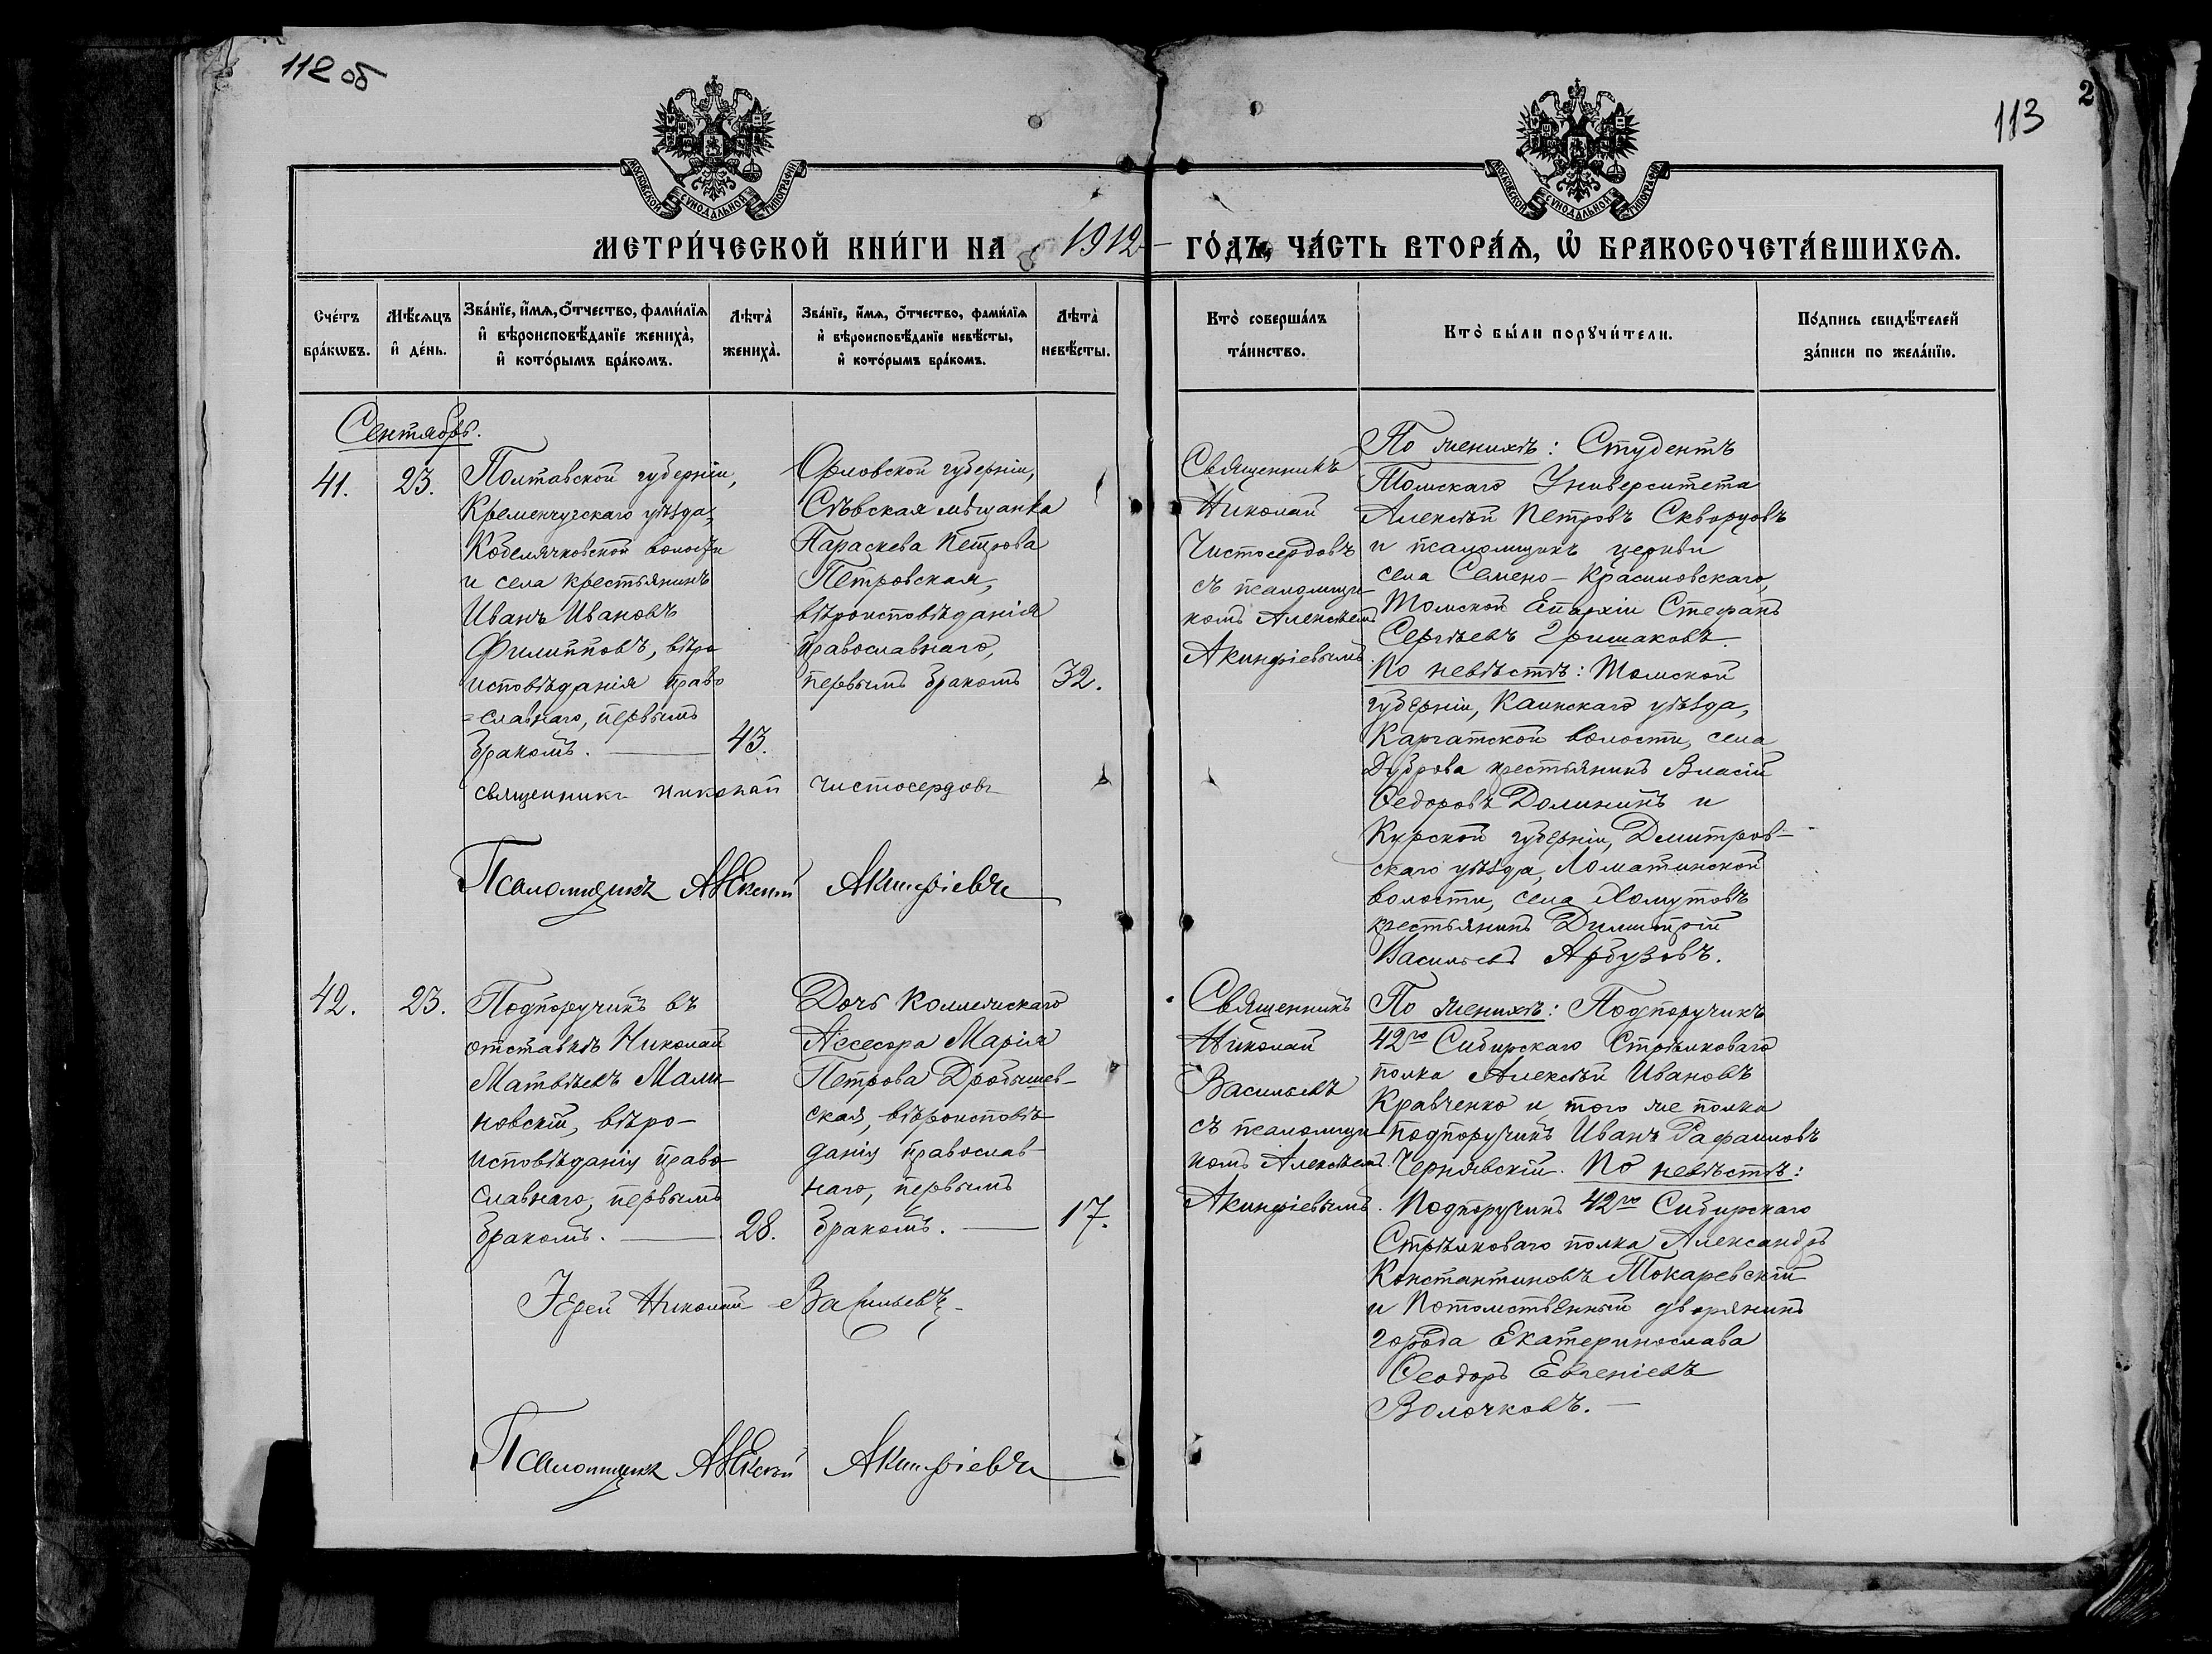 112 об
113
2
МОСКОВСКОЙ СѴНОДАЛЬНОЙ ТИПОГРАФІИ
МОСКОВСКОЙ СѴНОДАЛЬНОЙ ТИПОГРАФІИ
МЕТРИ́ЧЕСКОЙ КНИ́ГИ НА 1912 ГО́ДЪ, ЧА́СТЬ ВТОРА́Ѧ, Ѡ҆ БРАКОСОЧЕТА́ВШИХСѦ.
Сче́тъ бра́кѡвъ.
Мѣ́сѧцъ и҆ де́нь.
Зва́нїе, и҆́мѧ, ѻ҆́тчество, фами́лїѧ и҆ вѣроисповѣ́данїе жениха̀, и҆ кото́рымъ бра́комъ.
Лѣта̀ жениха̀.
Зва́нїе, и҆́мѧ, ѻ҆́тчество, фами́лїѧ и҆ вѣроисповѣ́данїе невѣ́сты, и҆ кото́рымъ бра́комъ.
Лѣта̀ невѣ́сты.
Кто̀ соверша́лъ та́инство.
Кто̀ бы́ли порꙋчи́тели.
По́дпись свидѣ́телей за́писи по жела́нїю.
Сентябрь.
41.
23.
Полтавской губерніи,
Кременчугскаго уѣзда,
Кобелячковской волости
и села крестьянинъ
Иванъ Ивановъ
Филипповъ, вѣро
исповѣданія право
=славнаго, первымъ
бракомъ. —
43.
Орловской губерніи,
Сѣвская мѣщанка
Параскева Петрова
Петровская,
вѣроисповѣданія
православнаго,
первымъ бракомъ
32.
Священникъ
Николай
Чистосердовъ
съ псаломщи-
комъ Алексѣемъ
Акинфіевымъ.
По женихѣ: Студентъ
Томскаго Университета
Алексѣй Петровъ Скворцовъ
и псаломщикъ церкви
села Семено-Красиловскаго,
Томской Епархіи Стефанъ
Сергѣевъ Гришаковъ.
По невѣстѣ: Томской
губерніи, Каинскаго уѣзда,
Каргатской волости, села
Дуброва крестьянинъ Власій
Ѳедоровъ Долининъ и
Курской губерніи, Дмитров-
скаго уѣзда, Ломатинской
волости, села Хомутовъ
крестьянинъ Димитрій
Васильевъ Арбузовъ.
священникъ Николай Чистосердовъ
Псаломщикъ Алексѣй Акинфіевъ
42.
23.
Подпоручикъ въ
отставкѣ Николай
Матвѣевъ Мали-
новскій, вѣро-
исповѣданія право-
славнаго, первымъ
бракомъ. —
28.
Дочь Коллежскаго
Асессора Марія
Петрова Дробышев-
ская, вѣроисповѣ-
данія православ-
наго, первымъ
бракомъ. —
17.
Священникъ
Николай
Васильевъ
съ псаломщи-
комъ Алексѣемъ
Акинфіевымъ.
По женихѣ: Подпоручикъ
42го Сибирскаго Стрѣлковаго
полка Алексѣй Ивановъ
Кравченко и того же полка
подпоручикъ Иванъ Рафаиловъ
Чернявскій. По невѣстѣ:
Подпоручикъ 42го Сибирскаго
Стрѣлковаго полка Александръ
Константиновъ Токаревскій
и Потомственный дворянинъ
города Екатеринослава
Ѳеодоръ Евгеніевъ
Волочковъ. —
Іерей Николай Васильевъ
Псаломщикъ Алексѣй Акинфіевъ